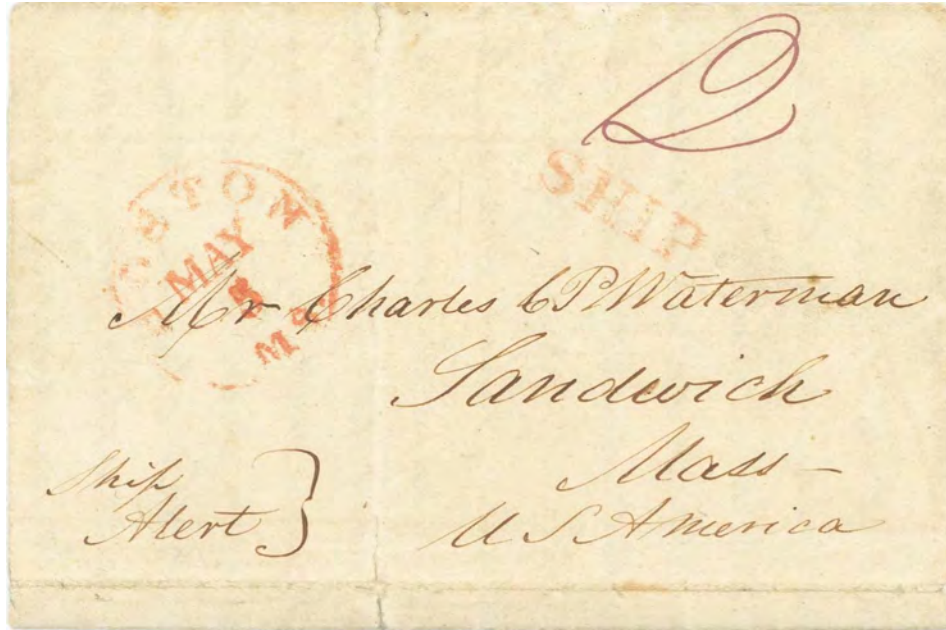 SHIP
BOSTON
MAY
MS
Mr Charles C P Waterman
Sandwich
Mass -
U S America
Ship
Alert